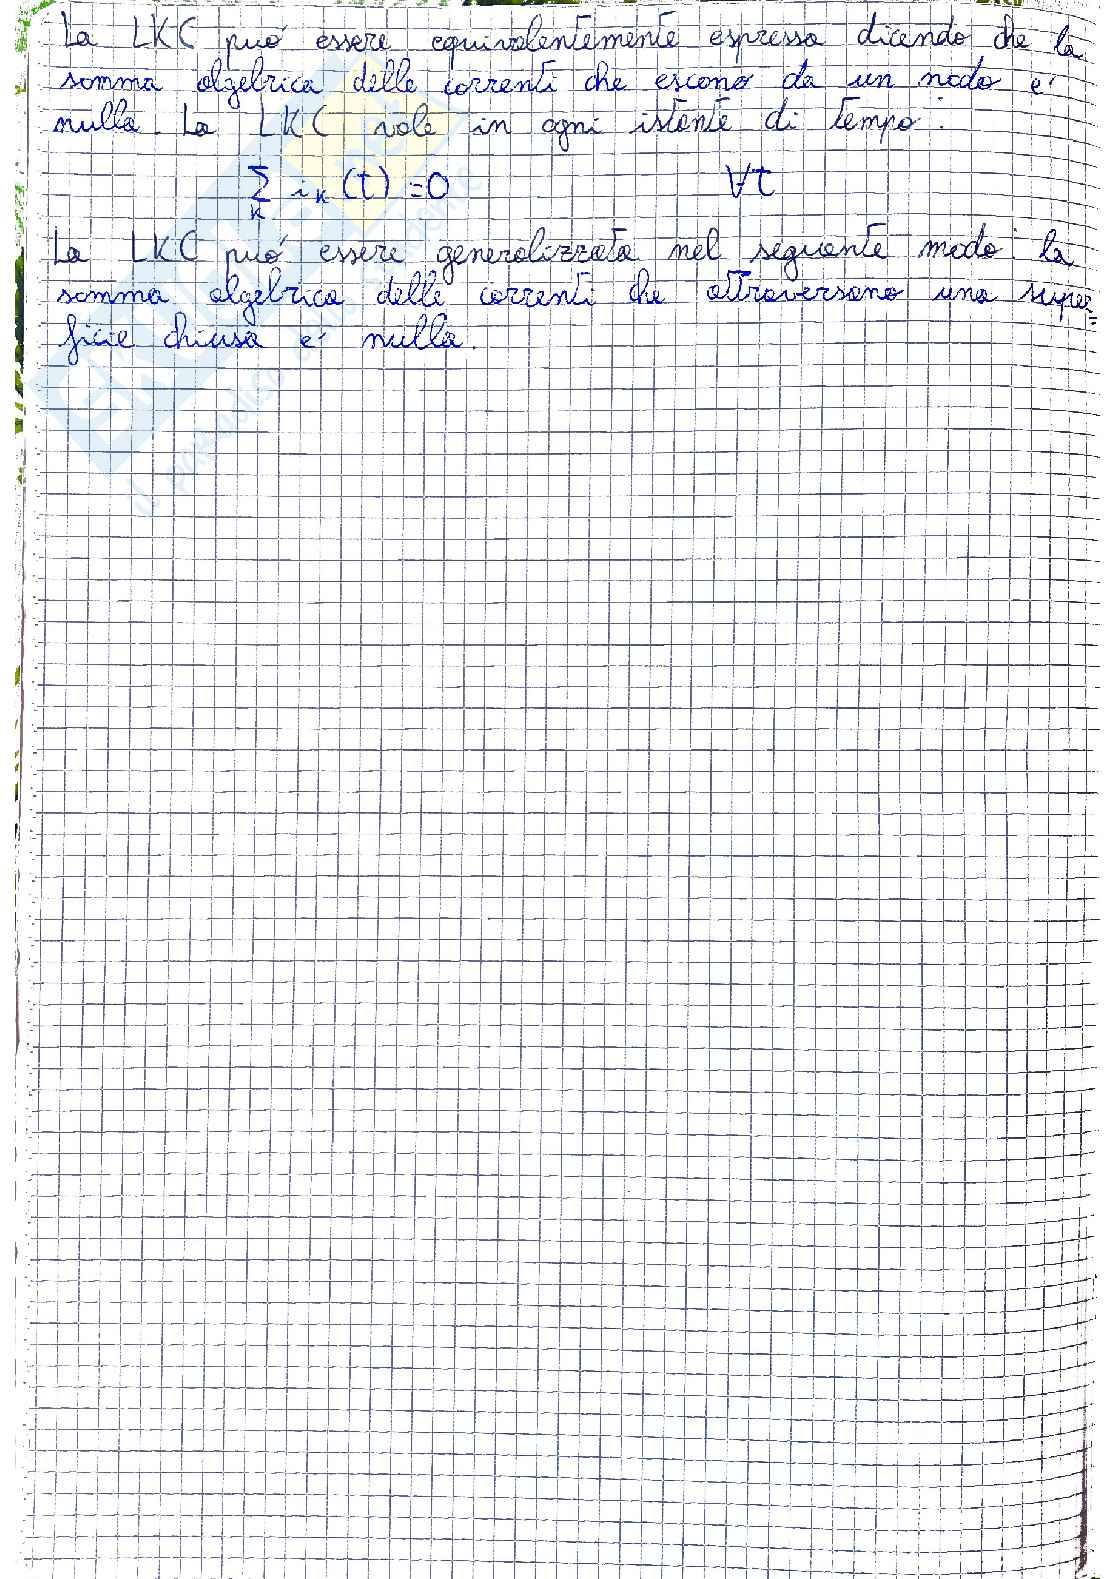 La LKC può essere equivalentemente espressa dicendo che la
somma algebrica delle correnti che escono da un nodo è
nulla. La LKC vale in ogni istante di tempo:
∑ₖ iₖ(t) = 0 ∀t
La LKC può essere generalizzata nel seguente modo: la
somma algebrica delle correnti che attraversano una super=
ficie chiusa è nulla.